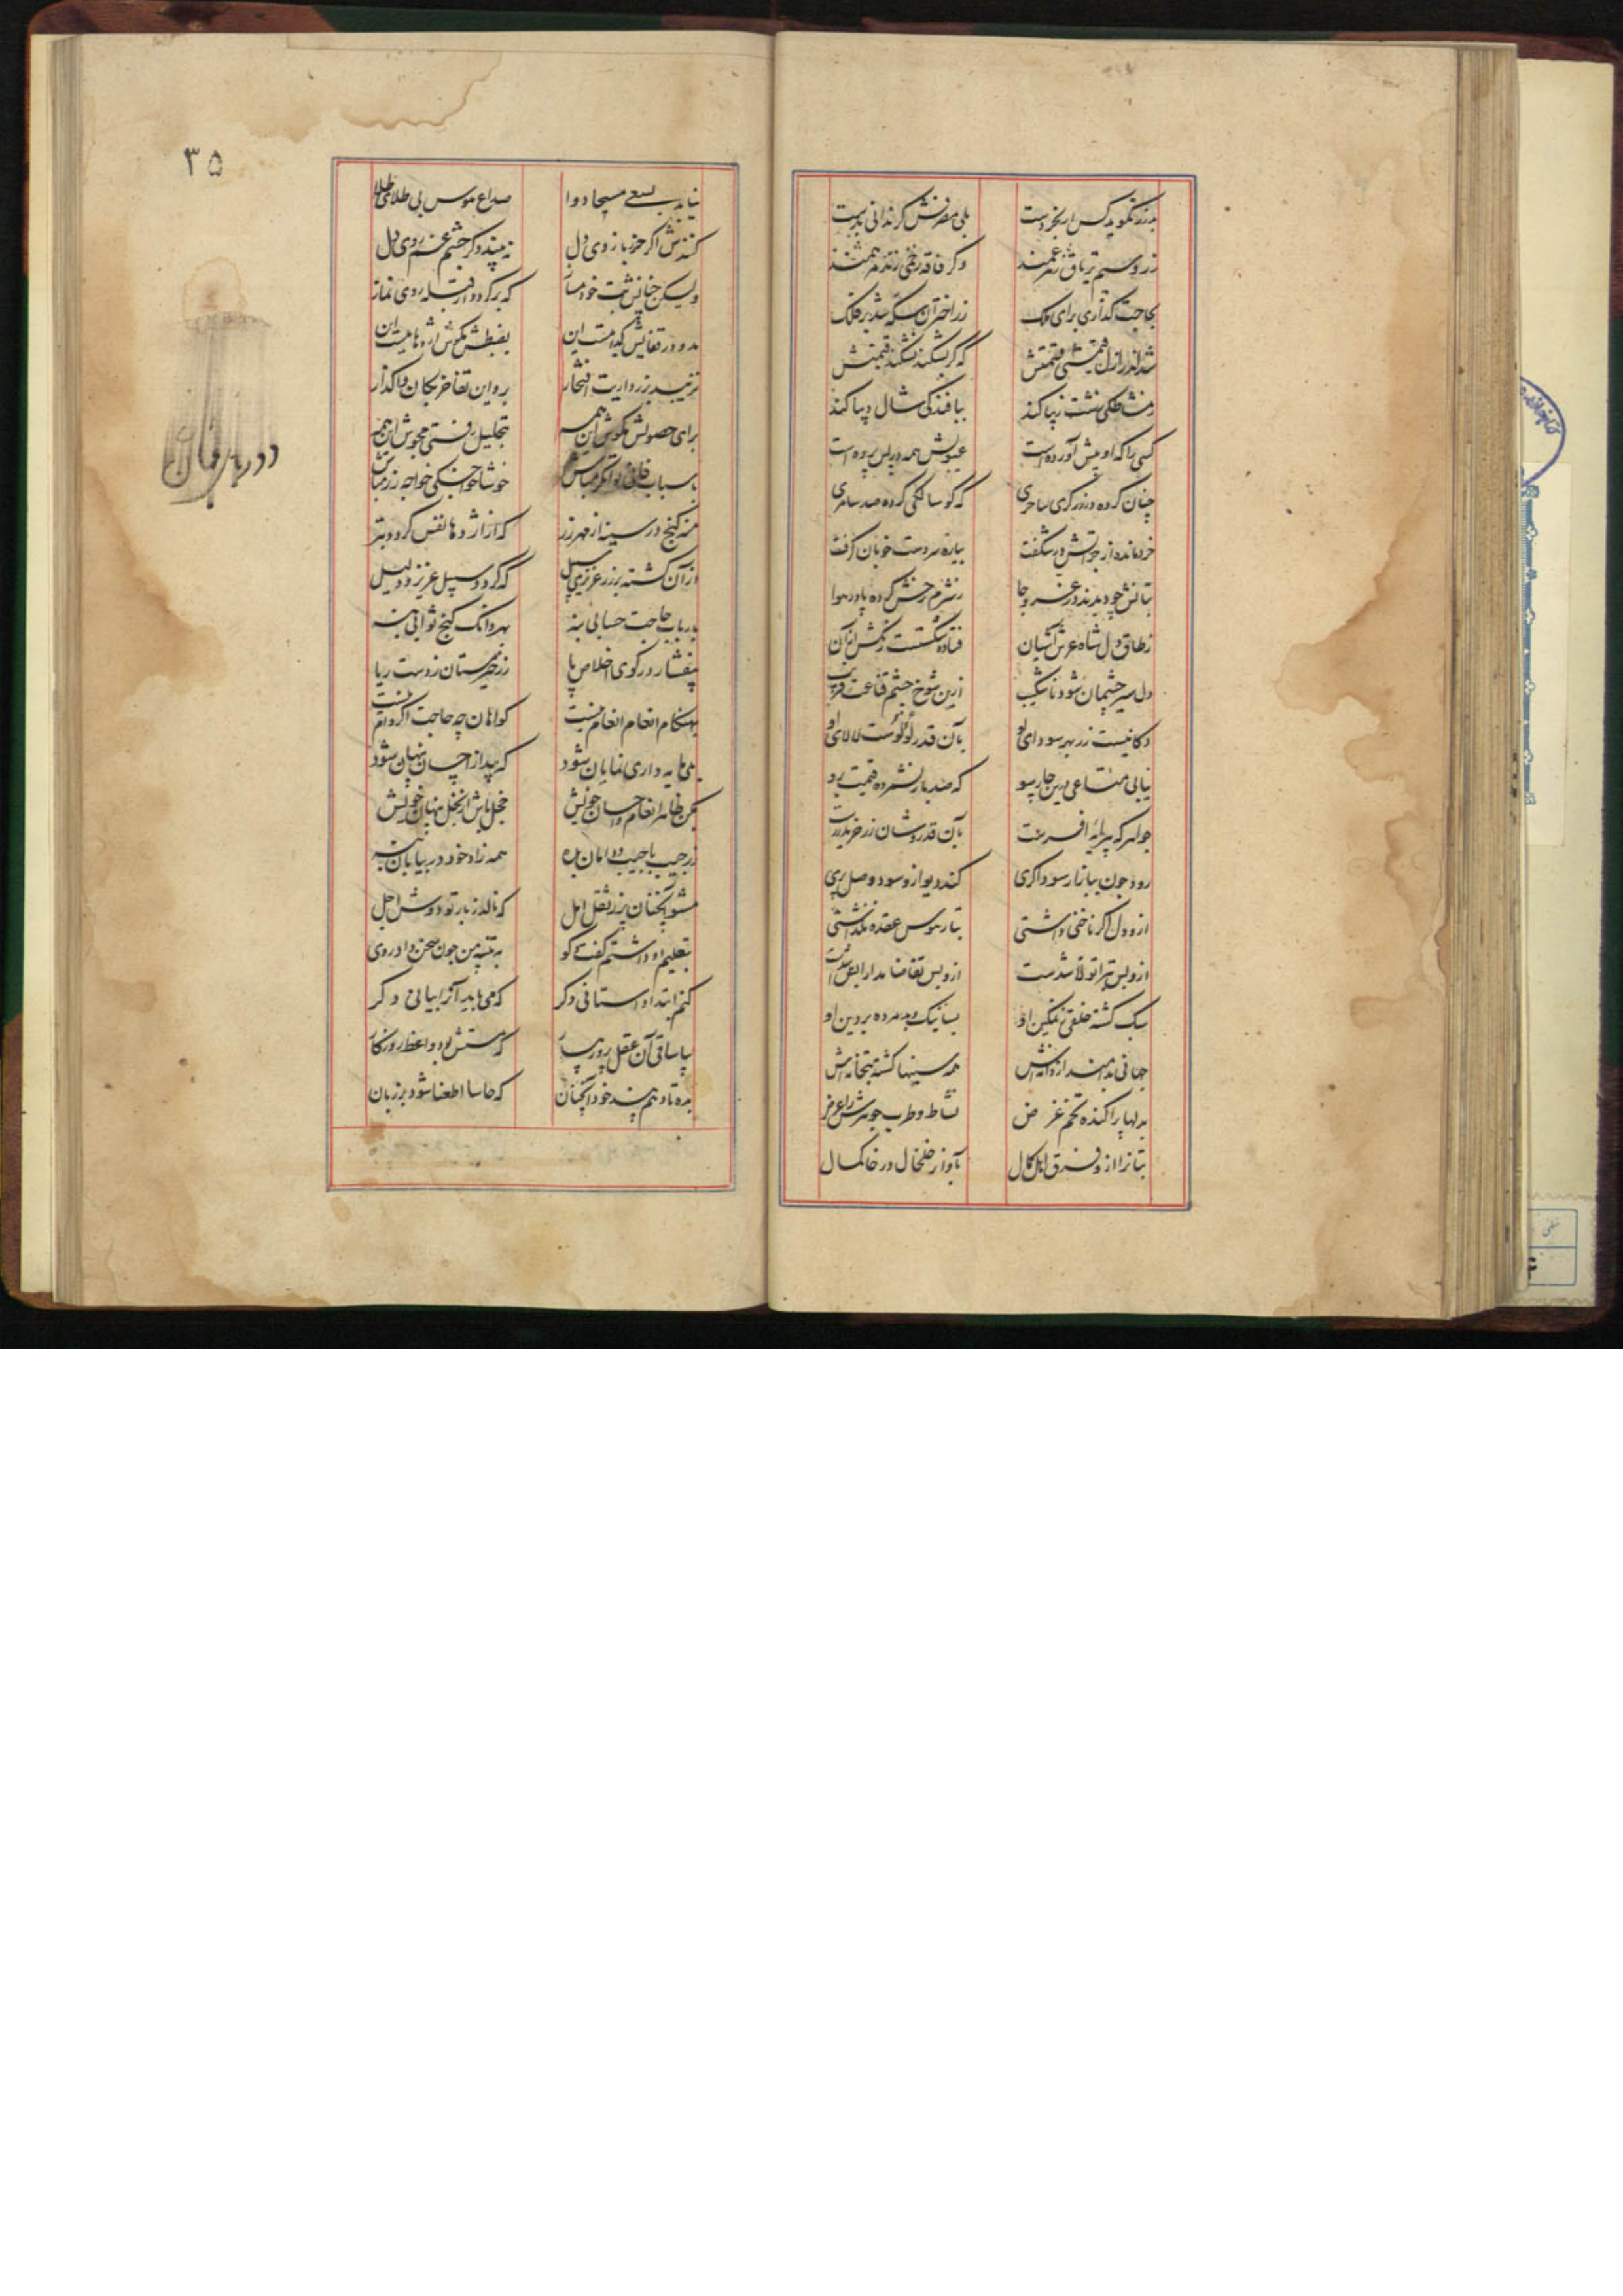 بزر نگوید کس ار بخردست
بلی مصرفش گر ندانی بدست
زر و سیم تریاق زهر غمند
وگر فاقه زخمی زند مرهمند
بحاجت گذاری برای ملک
زر اختران سکه شد بر فلک
که گر بشکند نشکند قیمتش
ز مشاطگی زشت زیبا کند
ببافندگی شال دیبا کند
کسی را که او پیش آورده است
عیوبش همه در پس پرده است
چنان کرده در زرگری ساحری
که گوسالگی کرده صد سامری
خرد مانده از جراتش در شگفت
بیاره سر دست خوبان گرفت
ز شرم رخش کرده پا در هوا
ز طاق دل شاه عرش آشیان
فتاده شکست زنگش از آن
دل سیر چشمان شود ناشکیب
ازین شوخ چشم قناعت فریب
دکانیست زر بهر سودای او
بآن قدر لؤلؤست لالای او
نیابی متاعی درین چارسو
که صد بار نشمرده قیمت برو
جواهر که پیرایه افسرست
بآن قدر و شان زر خرید زرست
رود چون ببازار سوداگری
کند دیو ازو سود وصل پری
ازو دل اگر ناخنی داشتی
بتار هوس عقده نگذاشتی
ازو بس تبرا تولا شدست
ازو بس تقاضا مدارا شدست
سبک گشته خلقی ز تمکین او
بسا نیک و بد مرده بر دین او
همه سینها گشته بتخانه‌اش
بدلها پراکنده تخم غرض
نشاط و طرب جوهرش را عرض
بتانرا ازو فرق اهل کمال
بآواز خلخال در خاکمال
۳۵
نیابد بسعی مسیحا دوا
صداع هوس بی طلای طلا
کنندش اگر حرز بازوی دل
نه بیند دگر چشم غم روی دل
ولیکن چنانش بت خود مساز
که برگردد از قبله روی نماز
مدو در قفایش گدامست این
بضبطش مکوش اژدهامیست این
نزیبد بزرداریت افتخار
برو این تفاخر بکان واگذار
برای حصولش مکوش این همه
بتحلیل رفتی مجوش این همه
باسباب فانی توانگر مباش
خوشا خواجگی خواجه زر مباش
منه گنج در سینه از مهر زر
که از اژدها نفس گردد بتر
از آن گشته بر زر عزیزی سبیل
که گردد سبیل عزیز و ذلیل
بارباب حاجت حسابی بنه
بهر دانگ گنج ثوابی بنه
بیفشار در کوی اخلاص پا
زر خیر بستان ز دست ریا
بهنگام انعام انعام نیست
گواهان چه حاجت اگر وام نیست
بلی مایه داری نمایان شود
که پیدا ز احسان پنهان شود
مکن ظاهر انعام و احسان خویش
خجل باش از بخل پنهان خویش
زر جیب با جیب و دامان بده
همه زاد خود در بیابان بده
مشو آنچنان بر زر ثقل امل
که نالد ز بار تو دوش اجل
بتعلیم او داشتم گفت گو
به تنبیه من چون سخن داد روی
کنم ابتدا داستانی دگر
که می‌باید آنرا بیانی دگر
بیا ساقی آن عقل پرورد یار
که مستش بود واعظ روزگار
بده تا دهم پند خود آنچنان